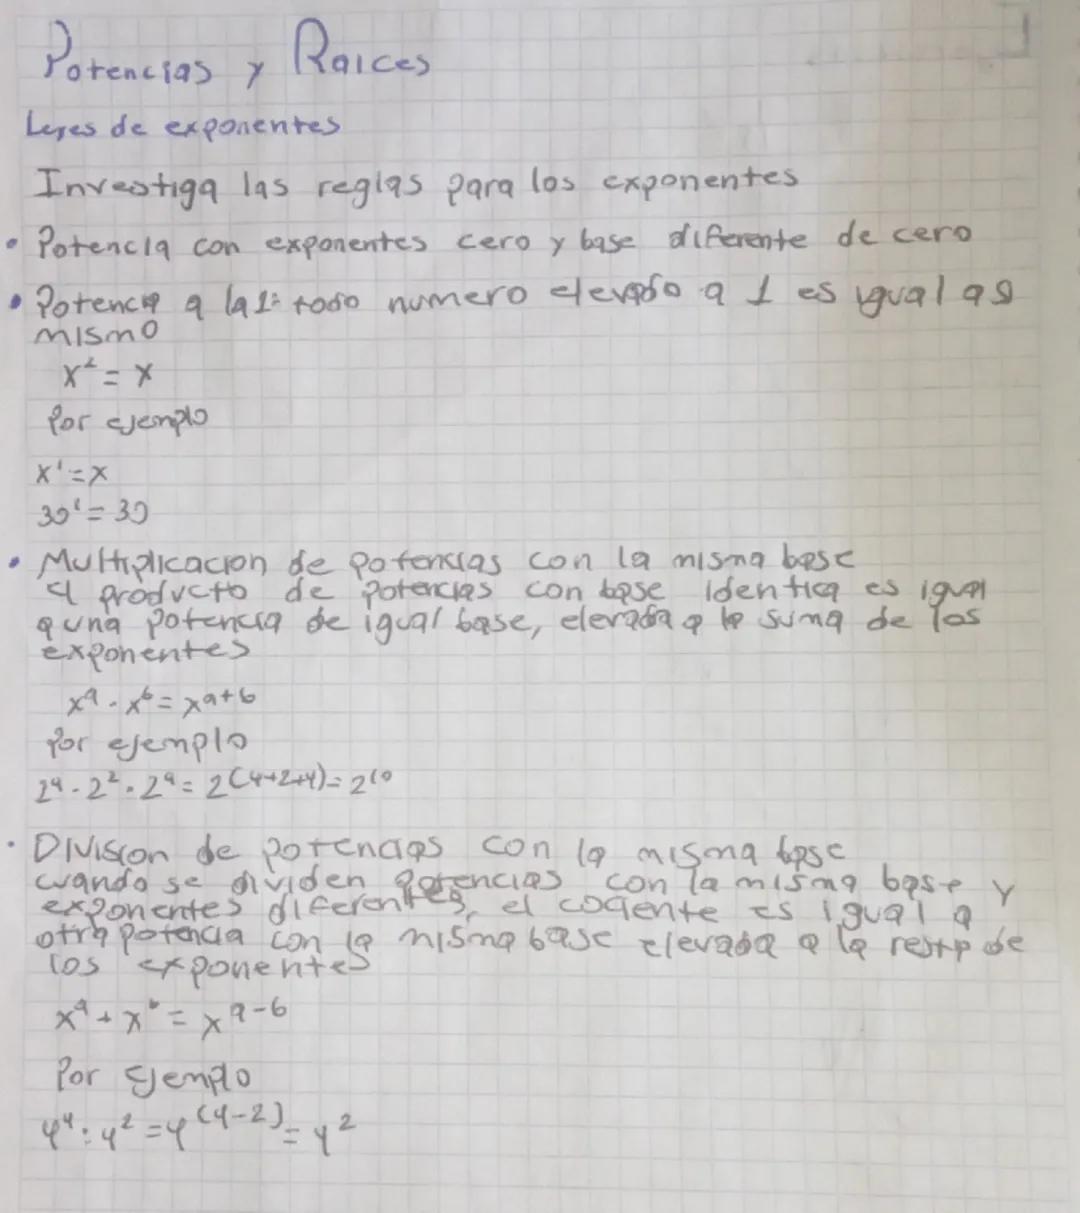 Potencias y Raices
Leyes de exponentes
Investiga las reglas para los exponentes
• Potencia con exponentes cero y base diferente de cero
• Potencia a la 1: todo numero elevado a 1 es igual a si
mismo
x¹ = x
Por ejemplo
x¹ = x
30¹ = 30
• Multiplicacion de potencias con la misma base
el producto de potencias con base identica es igual
a una potencia de igual base, elevada a la suma de los
exponentes
xᵃ · xᵇ = xᵃ⁺ᵇ
Por ejemplo
2⁴ · 2² · 2⁴ = 2(4+2+4) = 2¹⁰
• Division de potencias con la misma base
cuando se dividen potencias con la misma base y
exponentes diferentes, el cociente es igual a
otra potencia con la misma base elevada a la resta de
los exponentes
xᵃ ÷ xᵇ = xᵃ⁻ᵇ
Por Ejemplo
4⁴ : 4² = 4⁽⁴⁻²⁾ = 4²